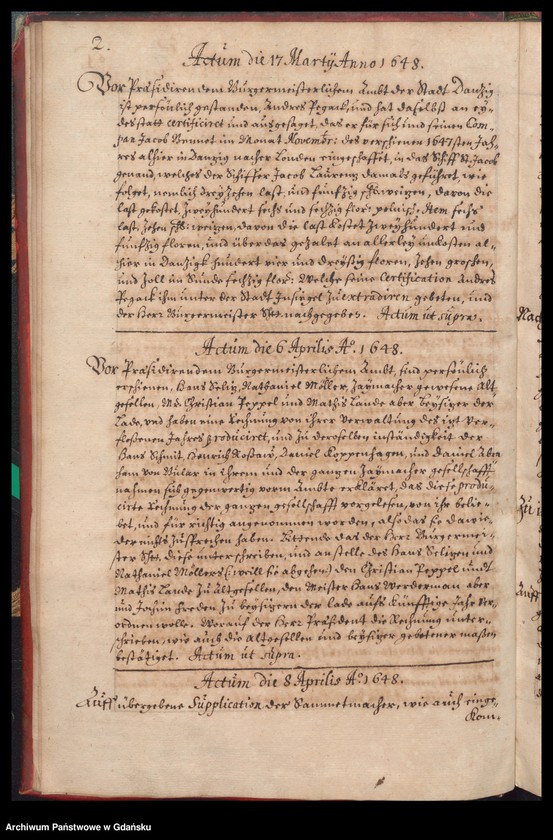 2.
Actum die 17 Martÿ Anno 1648.
Vor Präsidirendem Bürgermeisterlichem Ambt der Stadt Dantzig
ist persönlich gestanden, Andres Pegack, und hat daselbst an ey-
des statt certificiret und außgesaget, das er für sich und seinen Com-
pan Jacob im Monat Novembr: des verschienen 1647sten Jah-
res alhier in Dantzig nacher Londen eingeschiffet, in das Schiff St. Jacob
genand, welches der Schiffer Jacob Laurentz damals geführet, wie
folget, nemlich dreyzehen last, und fünfzig weitzen, davon die
last gekostet, zweyhundert sechs und sechzig flor: polnisch, Item sechs
last, zehen weitzen, davon die last kostet zweyhundert und
fünfzig floren, und über das gezalet an allerley unkosten al-
hier in Dantzigk hundert vier und dreyßig floren, zehen groschen,
und Zoll im Sunde sechzig flor: Welche seine Certification Andres
Pegack ihm unter der Stadt Insiegel zu extradiren gebeten, und
der Herr Bürgermeister nachgegeben. Actum ut supra.
Actum die 6 Aprilis Aº. 1648.
Vor Präsidirendem Bürgermeisterlichem Ambt, sind persönlich
erschienen, Hans Selig, Nathaniel Möller, gewesene Alt-
gesellen, Christian Peppel und Mathis Lande aber beysitzer der
Lade, und haben eine Rechnung von ihrer Verwaltung des itzt ver-
flossenen Jahres produciret, und zu derselben inständigkeit der
Hans Schmit, Henrich, Daniel Koppenhagen, und Daniel Abra-
ham von in ihrem und der gantzen gesellschafft
nahmen hiebgegenwertig vorm Ambte erkläret, das diese produ-
cirte Rechnung der gantzen gesellschafft vorgelesen, von ihr belie-
bet, und für richtig angenommen worden, also das sie dawie-
der nichts zusprechen haben. Bittende das der Herr Bürgermei-
ster diese unterschreiben, und anstelle des Hans Seligen und
Nathaniel Möllers (: weill sie abgehen:) den Christian Peppel undt
Mathis Lande zu Altgesellen, den Meister Hans Werderman aber
und Jochim Freden zu beysitzern der lade aufs künfftige Jahr ver-
ordnen wolle. Worauf der Herr Präsident die Rechnung unter-
schrieben, wie auch die Altgesellen und beysitzer, gebetener maßen
bestätiget. Actum ut supra.
Actum die 8 Aprilis Aº. 1648.
Auff übergebene Supplication der Sammetmacher, wie auch einge-
kom-
Nach
Zu
Auff
Archiwum Państwowe w Gdańsku